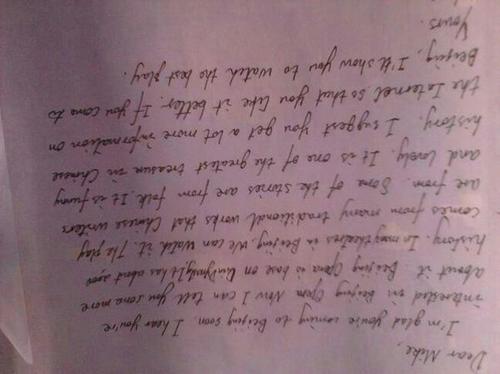 Dear Mike,
I'm glad you're coming to Beijing soon. I hear you're
interested in Beijing Opera. Now I can tell you some more
about it. Beijing Opera is base on It has about 200
history. In many theatres in Beijing we can watch it. The play
comes from many traditional works that Chinese writers
are from. Some of the stories are from folk. It is funny
and lovely. It is one of the greatest treasure in Chinese
history. I suggest you get a lot more information on
the Internet so that you like it better. If you come to
Beijing, I'll show you to watch the best play.
Yours.